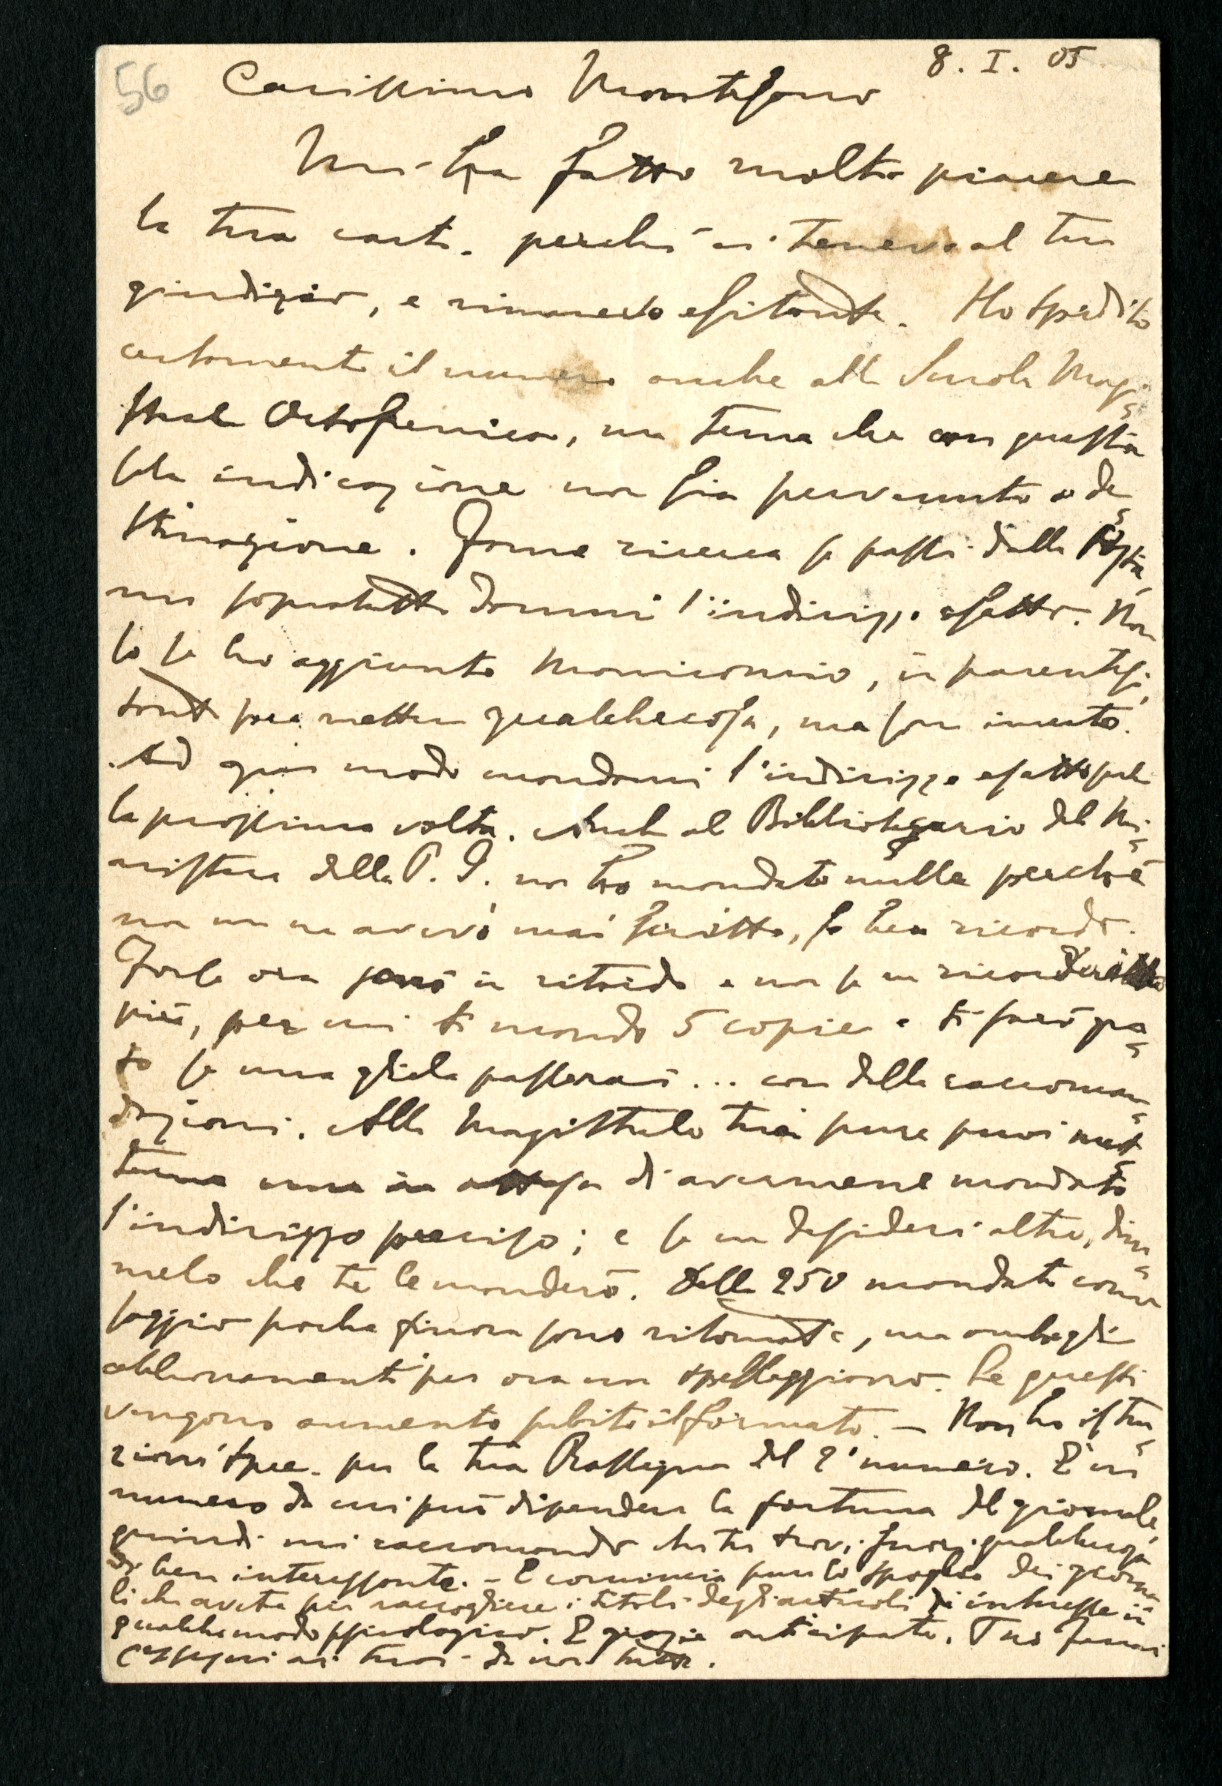 56
8. I. 05
Carissimo Montesano
Mi ha fatto molto piacere
la tua cart. perché ci tenevo al tuo
giudizio, e rimanevo esitante. Ho spedito
certamente il numero anche alla Scuola Magi-
strale Ortofrenica, ma temo che con questa
sola indicazione non sia pervenuto a de-
stinazione. Fanne ricerca se passi dalla Posta
ma sopratutto dammi l'indirizzo esatto. Non
so se ho aggiunto Manicomio, in parentesi,
tanto per mettere qualchecosa, ma son incerto.
Ad ogni modo mandami l'indirizzo esatto per
la prossima volta. Anche al Bibliotecario del Mi-
nistero della P. I. non ho mandato nulla perchè
non me ne avevi mai scritto, se ben ricordo.
Forse ora però in ritardo e non se ne
più, per cui ti mando 5 copie e ti sarò gra-
to se una gliela passerai... con delle raccoman-
dazioni. Alla Magistrale tua pure puoi met-
terne una in attesa di avermene mandato
l'indirizzo preciso; e se ne desideri altre, dim-
melo che te le manderò. Delle 250 mandate come
saggio poche finora sono ritornate, ma anche gli
abbonamenti per ora non spesseggiano. Se questi
vengono aumento subito il formato. — Non ho istru-
zioni spec. per la tua Rassegna del 2° numero. È un
numero da cui può dipendere la fortuna del giornale,
quindi mi raccomando che tu trovi fuori qualchecosa
di ben interessante. – E comincia pure lo spoglio dei giorna-
li che avete per raccogliere i titoli degli articoli di interesse in
qualche modo psicologico. E grazie anticipate. Tuo
Ossequi ai tuoi da noi tutti.